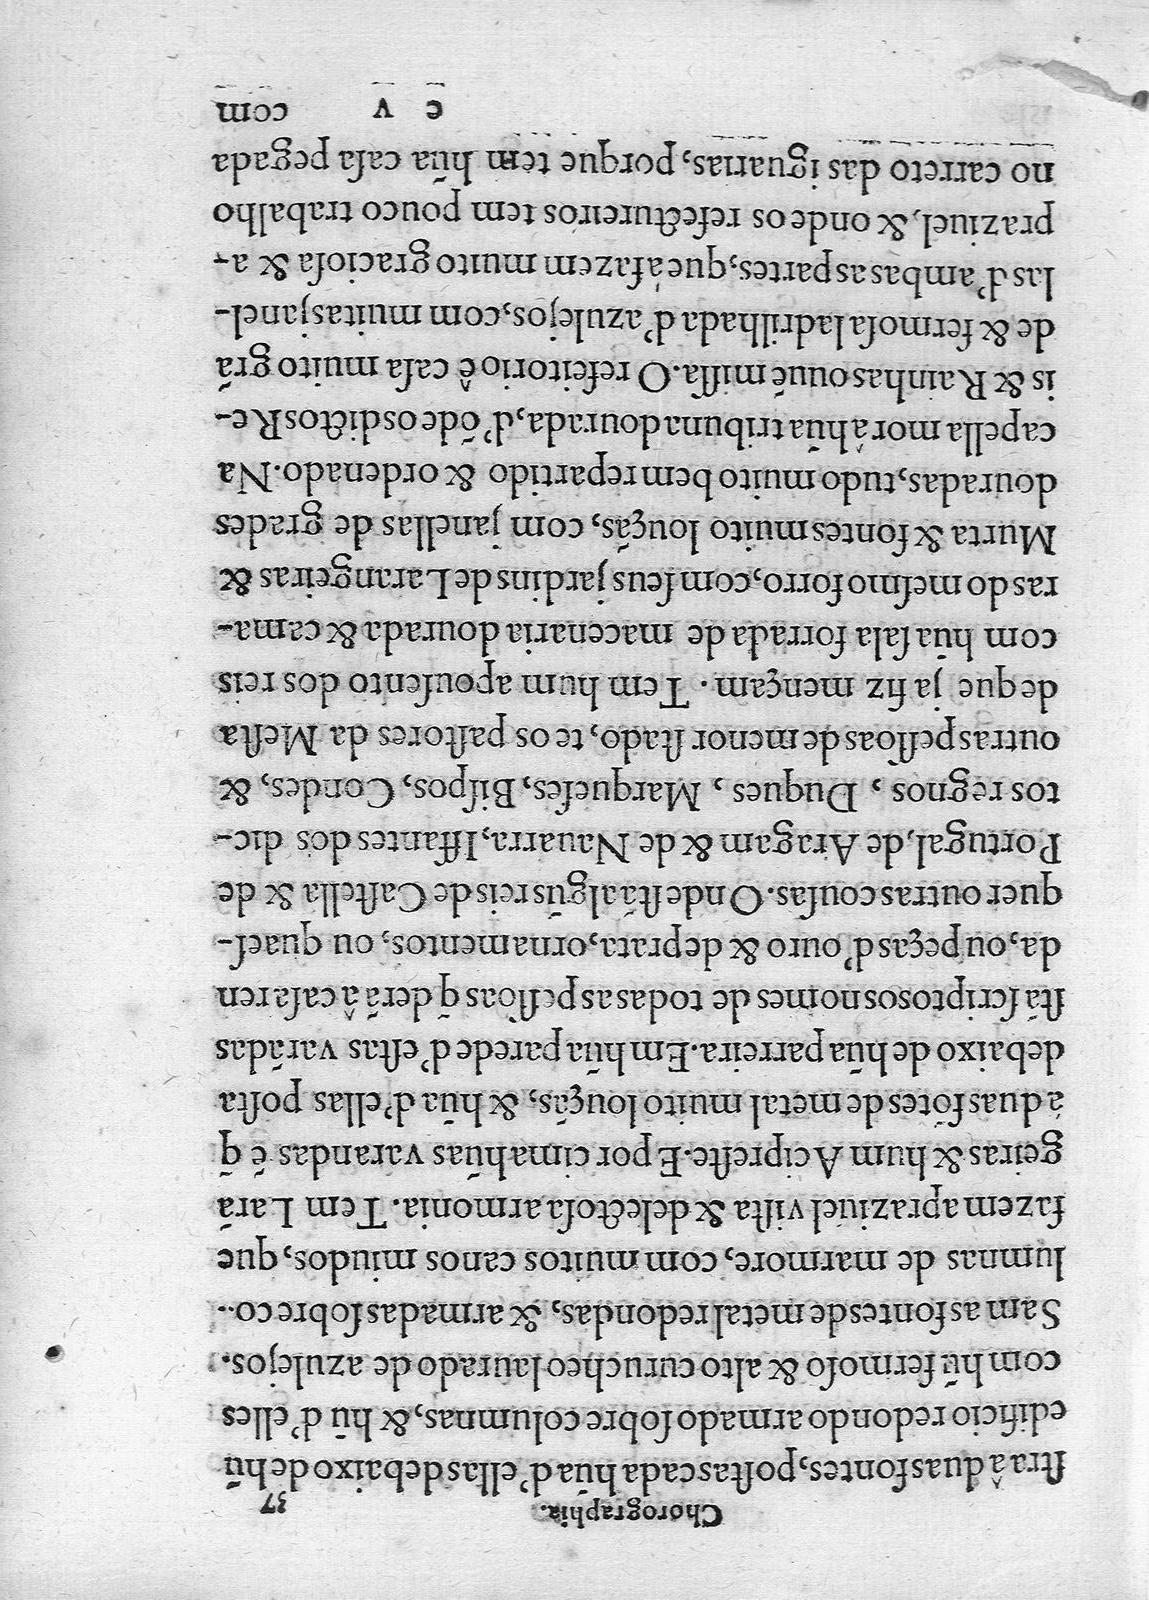 Chorographia. 37
ſtra â duas fontes, poſtas cada hũa d'ellas debaixo de hũ
edificio redondo armado ſobre columnas, & hũ d'elles
com hũ fermoſo & alto curucheo laurado de azulejos.
Sam as fontes de metal redondas, & armadas ſobre co-
lumnas de marmore, com muitos canos miudos, que
fazem apraziuel viſta & delectoſa armonia. Tem Larã
geiras & hum Acipreſte. E por cima hũas varandas ẽ q̃
á duas fõtes de metal muito louçãs, & hũa d'ellas poſta
debaixo de hũa parreira. Em hũa parede d'eſtas varãdas
ſtá ſcriptos os nomes de todas as peſſoas q̃ derã â caſa ren
da, ou peças d'ouro & de prata, ornamentos, ou quaeſ-
quer outras couſas. Onde ſtã algũs reis de Caſtella & de
Portugal, de Aragam & de Nauarra, Iffantes dos dic-
tos regnos, Duques, Marqueſes, Biſpos, Condes, &
outras peſſoas de menor ſtado, te os paſtores da Meſta
de que ja fiz mençam. Tem hum apouſento dos reis
com hũa ſala forrada de macenaria dourada & cama-
ras do meſmo forro, com ſeus jardins de Larangeiras &
Murta & fontes muito louçãs, com janellas de grades
douradas, tudo muito bem repartido & ordenado. Na
capella mor â hũa tribuna dourada, d'õde os dictos Re-
is & Rainhas ouuẽ miſſa. O refeitorio ê caſa muito grã
de & fermoſa ladrilhada d'azulejos, com muitas janel-
las d'ambas as partes, que á fazem muito gracioſa & a-
praziuel, & onde os refectureiros tem pouco trabalho
no carreto das iguarias, porque tem hũa caſa pegada
e v com